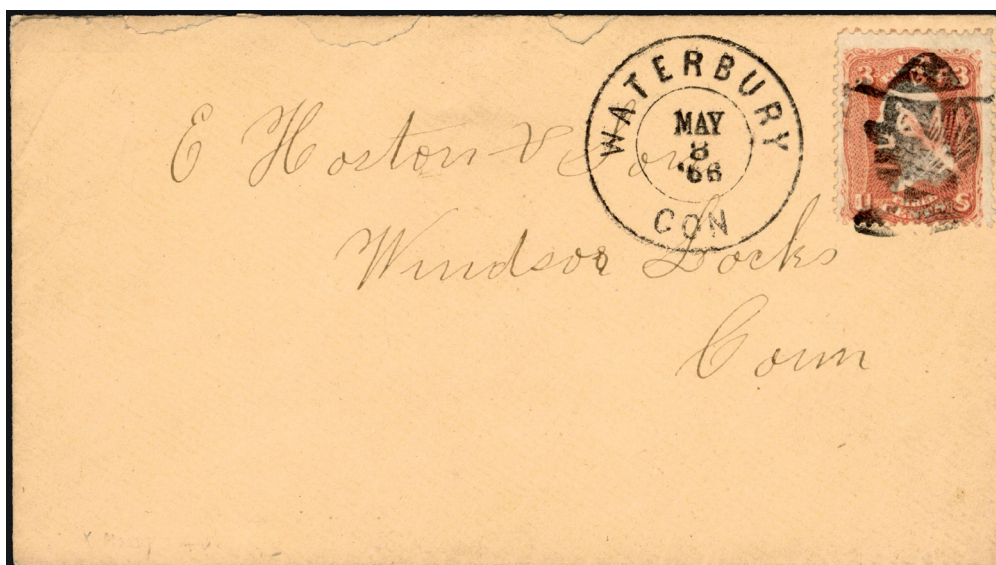 WATERBURY
MAY
8
'66
CON
3 3
U S
E Hoston & Son
Windsor Locks
Conn